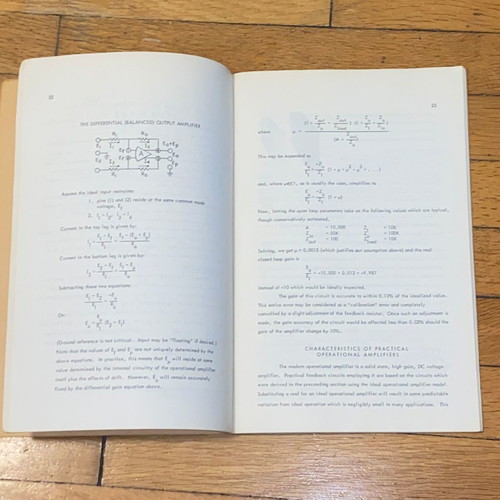 22
THE DIFFERENTIAL (BALANCED) OUTPUT AMPLIFIER
Assume the ideal input restraints:
1. pins (1) and (2) reside at the same common mode
voltage, E
Current in the top leg is given by:
Current in the bottom leg is given by:
Subtracting these two equations:
Or:
(Ground reference is not critical. Input may be "floating" if desired.)
Note that the values of E and E are not uniquely determined by the
above equations. In practice, this means that E will reside at some
value determined by the internal circuitry of the operational amplifier
itself plus the effects of drift. However, E will remain accurately
fixed by the differential gain equation above.
23
where
This may be expanded to
and, where as is usually the case, simplifies to
Now, letting the open loop parameters take on the following values which are typical,
though conservatively estimated,
A = 10,000
= 50K
= 100
= 10K
= 100K
= 10K
Solving, we get μ = 0.0013 (which justifies our assumption above) and the real
closed loop gain is
= -10.000 + 0.013 = -9.987
instead of -10 which would be ideally expected.
The gain of this circuit is accurate to within 0.13% of the idealized value.
This entire error may be considered as a "calibration" error and completely
cancelled by a slight adjustment of the feedback resistor. Once such an adjustment is
made, the gain accuracy of the circuit would be affected less than 0.02% should the
gain of the amplifier change by 10%.
CHARACTERISTICS OF PRACTICAL
OPERATIONAL AMPLIFIERS
The modern operational amplifier is a solid state, high gain, DC voltage
amplifier. Practical feedback circuits employing it are based on the circuits which
were derived in the preceding section using the ideal operational amplifier model.
Substituting a real for an ideal operational amplifier will result in some predictable
variation from ideal operation which is negligibly small in many applications. This